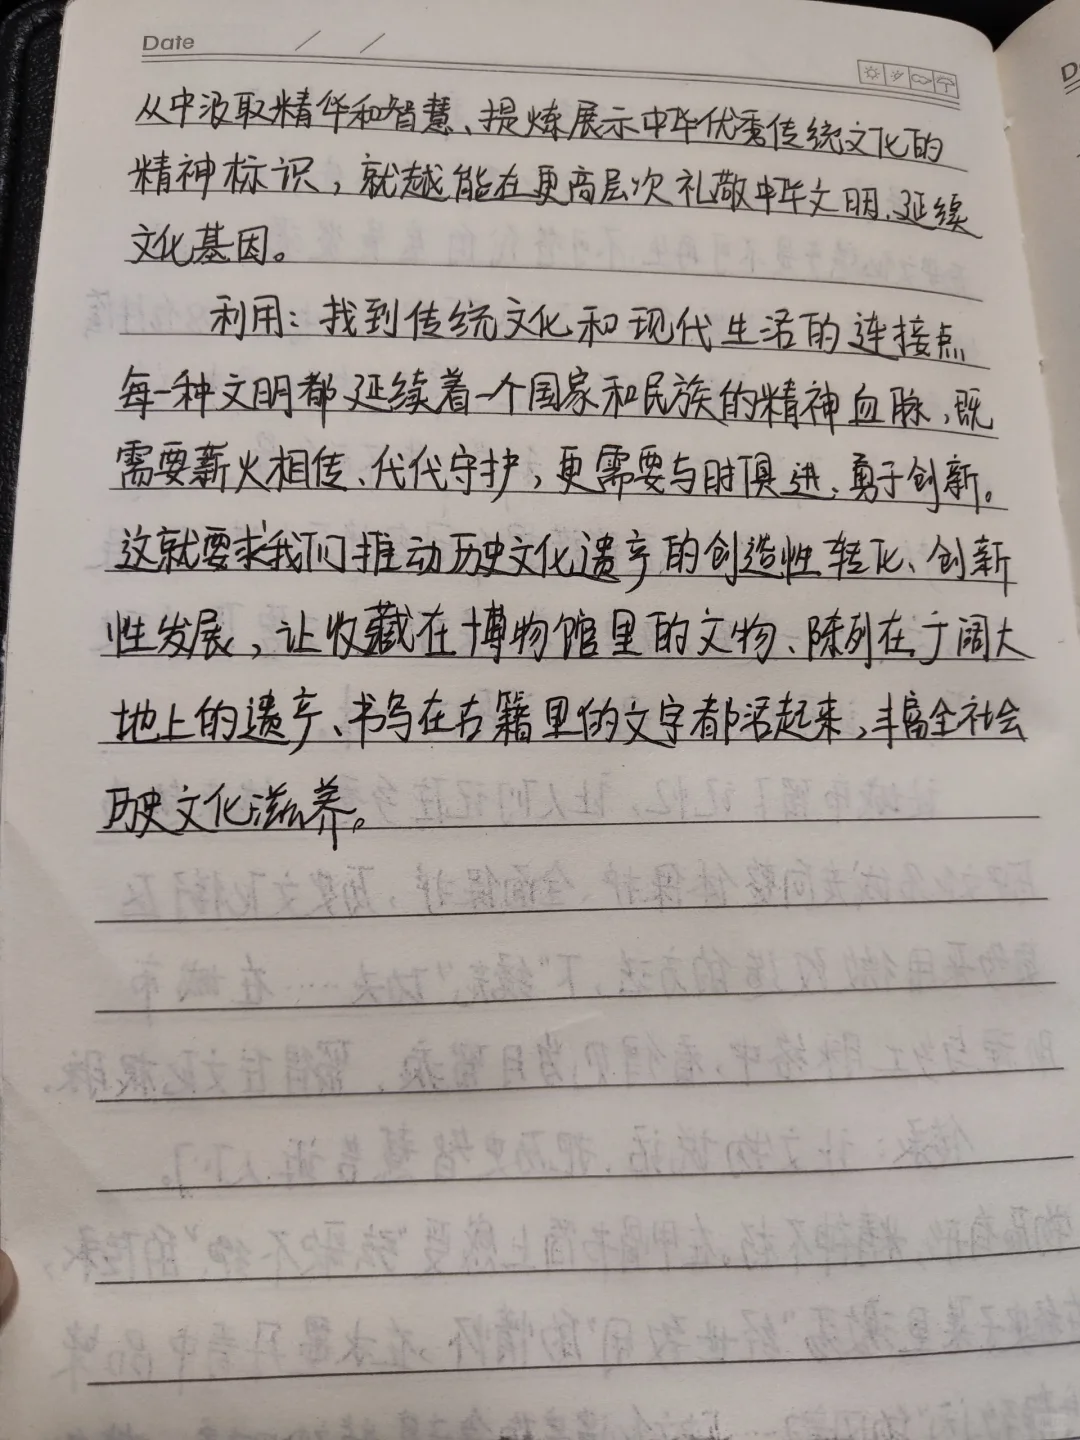 Date
从中汲取精华和智慧、提炼展示中华优秀传统文化的
精神标识，就越能在更高层次礼敬中华文明、延续
文化基因。
利用：找到传统文化和现代生活的连接点
每一种文明都延续着一个国家和民族的精神血脉，既
需要薪火相传、代代守护，更需要与时俱进、勇于创新。
这就要求我们推动历史文化遗产的创造性转化、创新
性发展，让收藏在博物馆里的文物、陈列在广阔大
地上的遗产、书写在古籍里的文字都活起来，丰富全社会
历史文化滋养。